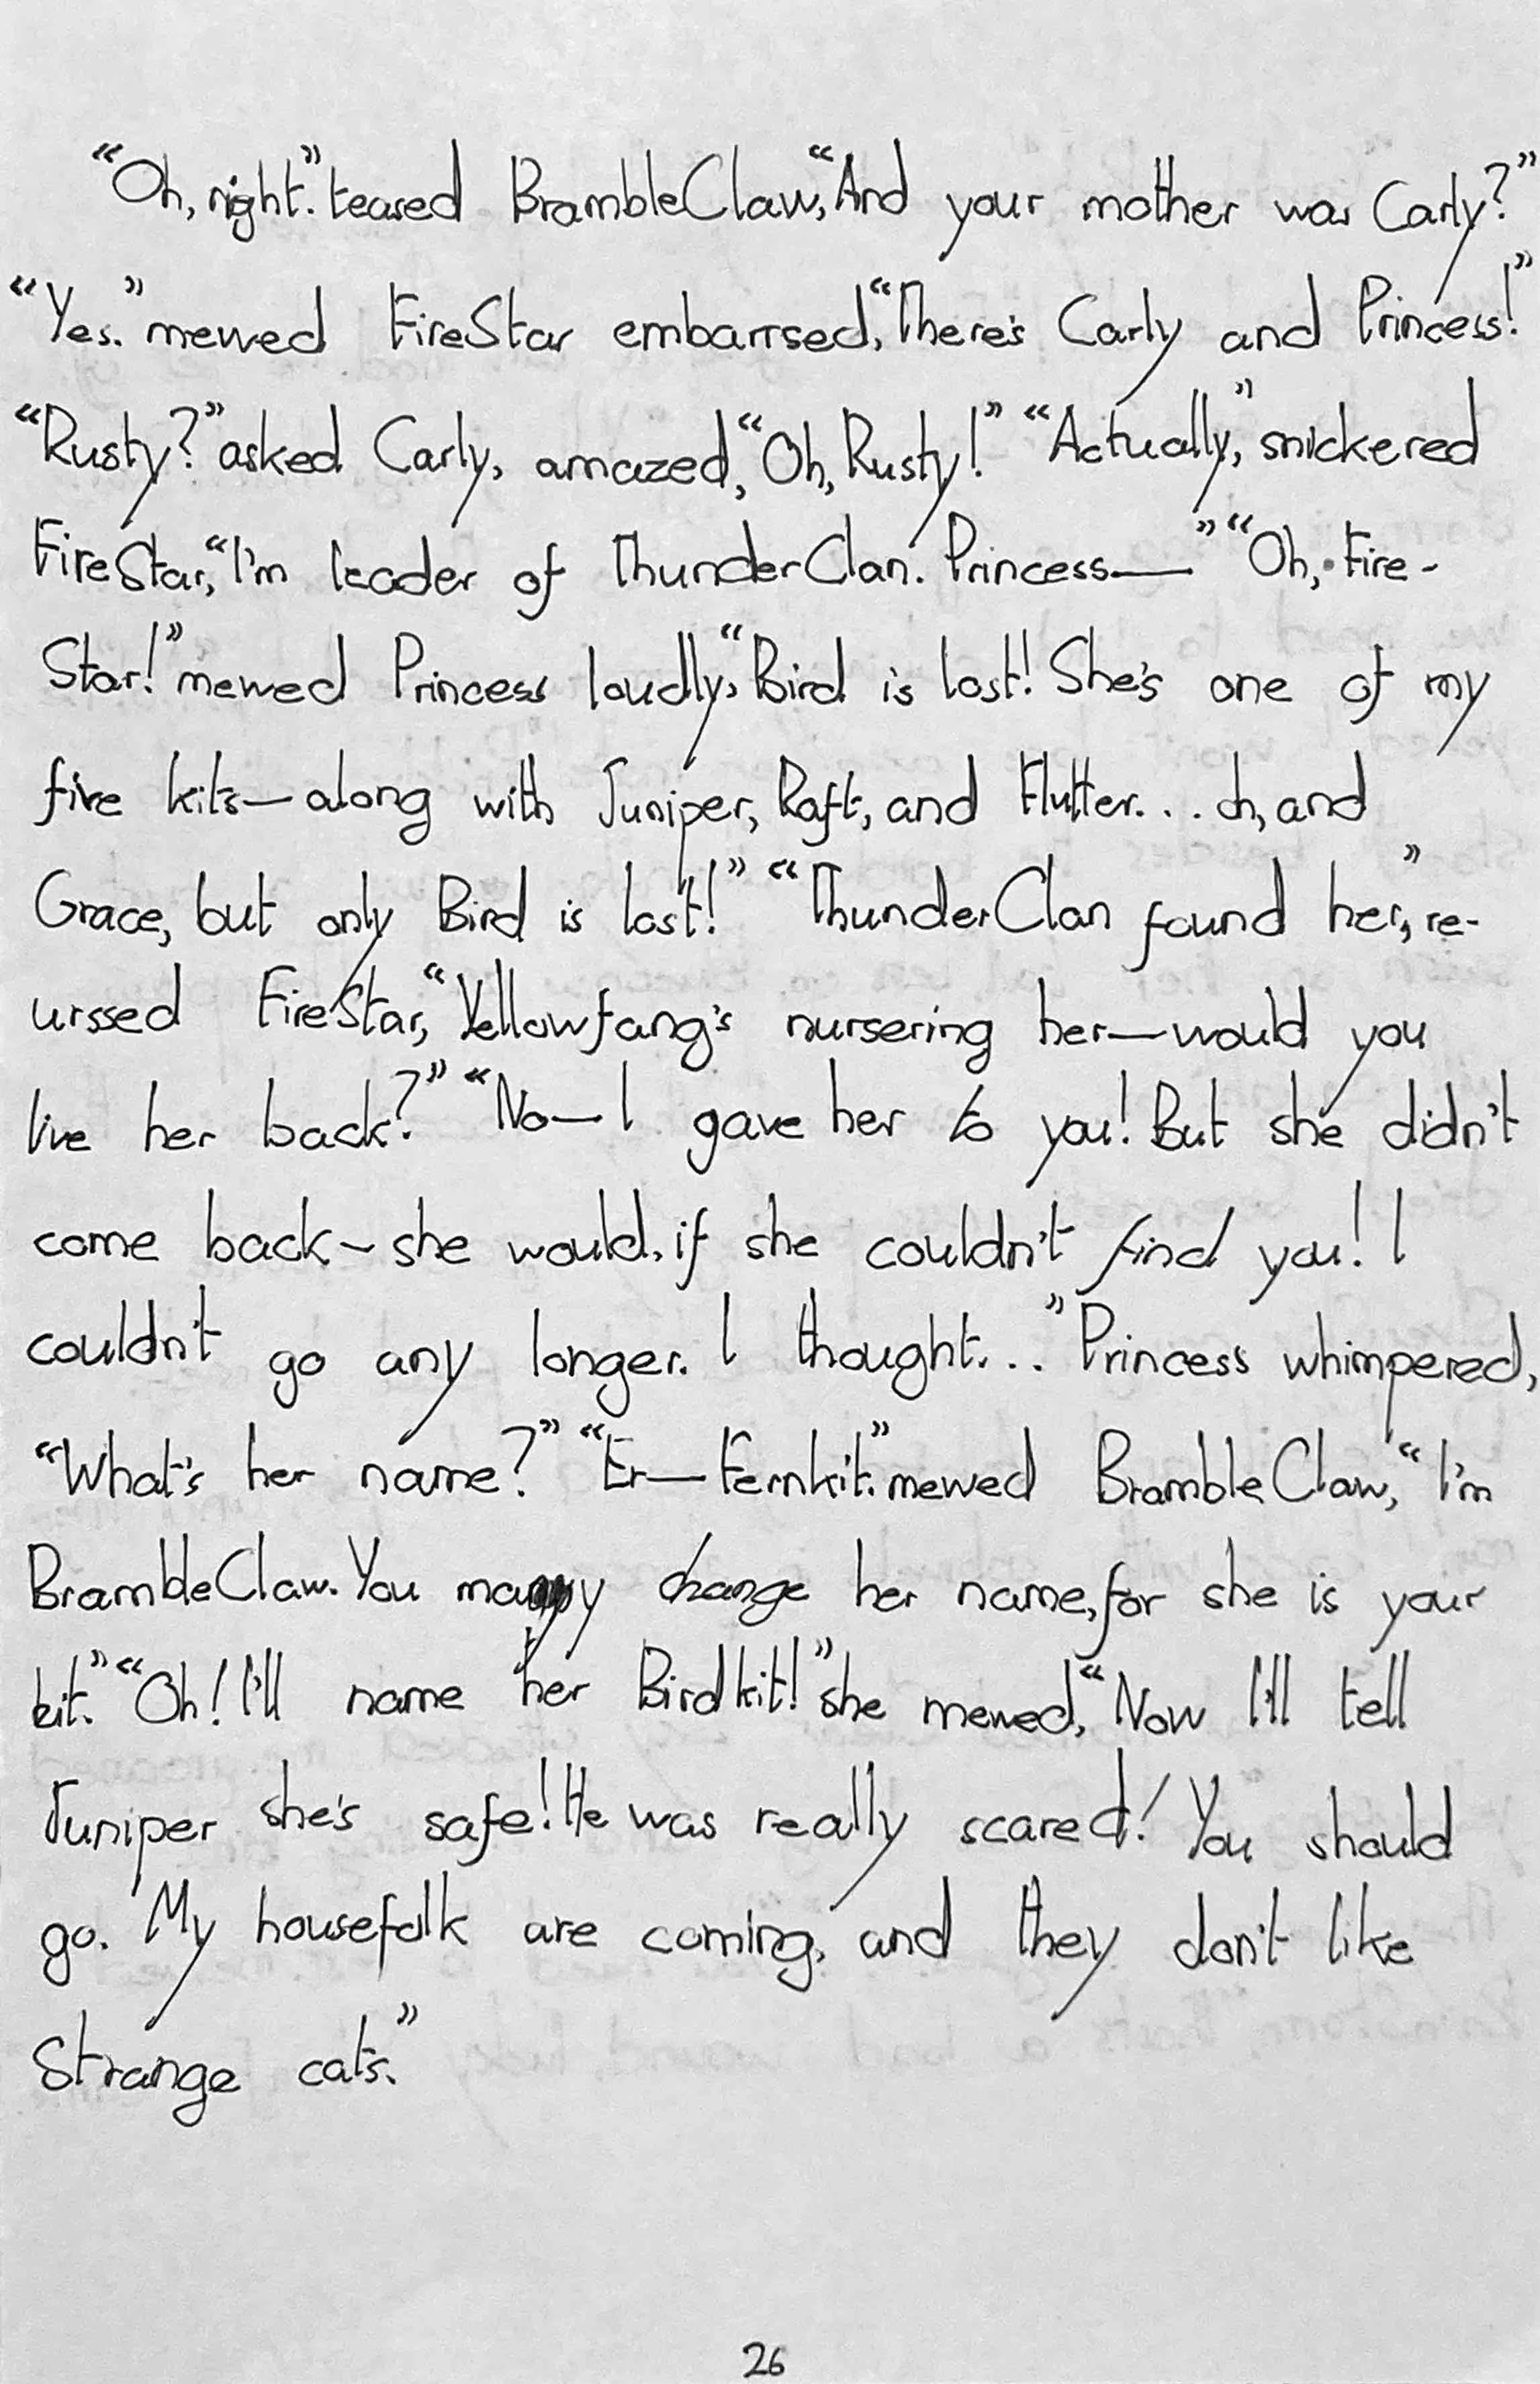 “Oh, right.” teased BrambleClaw, “And your mother was Carly?”
“Yes.” mewed FireStar embarrsed, “There's Carly and Princess!”
“Rusty?” asked Carly, amazed, “Oh, Rusty!” “Actually,” snickered
FireStar, “I'm leader of ThunderClan. Princess—” “Oh, Fire-
Star!” mewed Princess loudly, “Bird is lost! She's one of my
five kits—along with Juniper, Raft, and Flutter... oh, and
Grace, but only Bird is lost!” “ThunderClan found her,” re-
urssed FireStar, “Yellowfang's nursering her—would you
live her back?” “No—I gave her to you! But she didn't
come back—she would, if she couldn't find you! I
couldn't go any longer. I thought...” Princess whimpered,
“What's her name?” “Er—Fernkit.” mewed BrambleClaw, “I'm
BrambleClaw. You may change her name, for she is your
kit.” “Oh! I'll name her Birdkit!” she mewed, “Now I'll tell
Juniper she's safe! He was really scared! You should
go. My housefolk are coming, and they don't like
strange cats.”
26